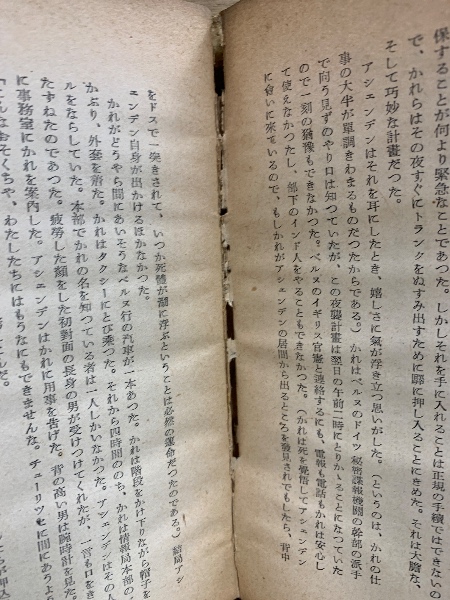 保することが何より緊急なことであつた。しかしそれを手に入れることは正規の手続ではできないの
で、かれらはその夜すぐにトランクをぬすみ出すために驛に押し入ることにきめた。それは大膽な、
そして巧妙な計畫だつた。
アシェンデンはそれを耳にしたとき、嬉しさに氣が浮き立つ思いがした。（というのは、かれの仕
事の大半が單調きわまるものだつたからである。）かれはベルヌのドイツ秘密諜報機關の幹部の派手
で向う見ずのやり口は知つていたが、この夜襲計畫は翌日の午前二時にとりかゝることになつていた
ので一刻の猶豫もできなかつた。ベルヌのイギリス官憲と連絡するにも、電報も電話もかれは安心し
て使えなかつたし、部下のインド人をやることもできなかつた。（かれは死を覺悟してアシェンデン
に會いに來ているので、もしかれがアシェンデンの居間から出るところを發見されでもしたら、背中
をドスで一突きされて、いつか死體が湖に浮ぶということは必然の運命だつたのである。）結局アシ
ェンデン自身が出かけるほかなかつた。
かれがどうやら間にあいそうなベルヌ行の汽車が一本あつた。かれは階段をかけ下りながら帽子を
かぶり、外套を着た。かれはタクシーにとび乘つた。それから四時間ののち、かれは情報局本部の
ルをならしていた。本部でかれの名を知つている者は一人しかいなかつた。アシェンデンはその人
たずねたのであつた。疲勞した顏をした初對面の長身の男が受けつけてくれたが、一言も口をき
に事務室にかれを案內した。アシェンデンはかれに用事を告げた。背の高い男は腕時計を見た
「こんなおそくちや、わたしたちにはもうなにもできませんな。チューリツヒに間にあうよう